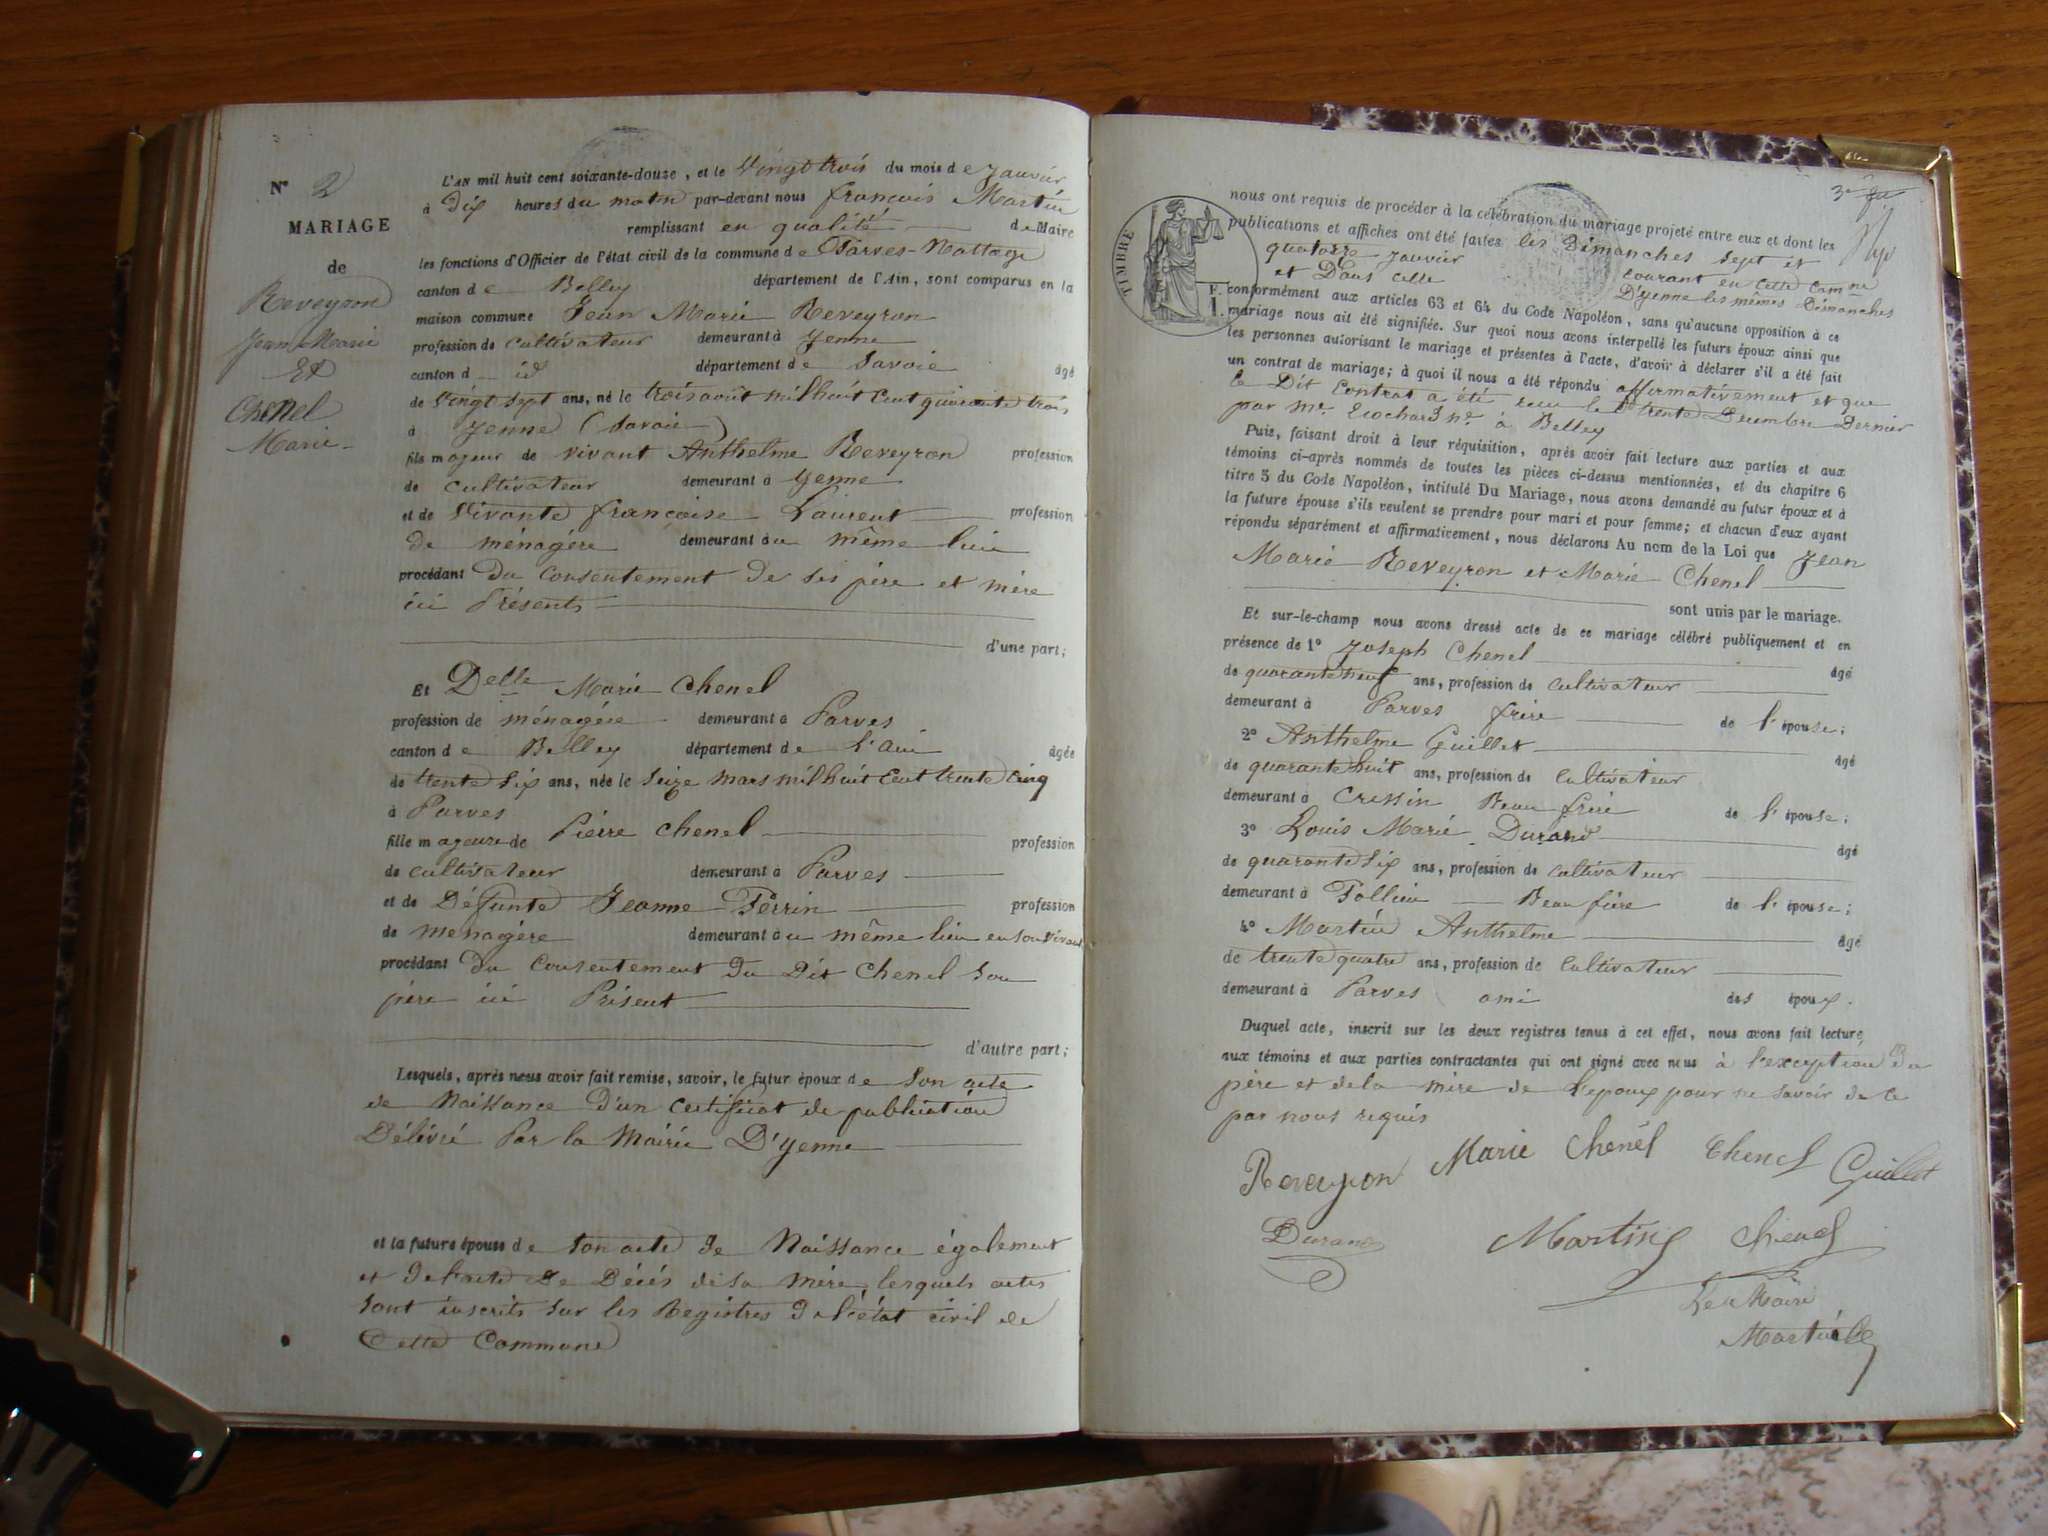 N° 2
MARIAGE
de
Reveyron
Jean Marie
Et
Chenel
Marie
L'AN mil huit cent soixante-douze, et le Vingt trois du mois de Janvier
à Dix heures du matin par-devant nous françois Martin
remplissant en qualité de Maire
les fonctions d'Officier de l'état civil de la commune de Parves-Nattage
canton de Belley département de l'Ain, sont comparus en la
maison commune Jean Marie Reveyron
profession de cultivateur demeurant à Yenne
canton d id département de Savoie âgé
de Vingt sept ans, né le trois août mil huit cent quarante trois
à Yenne (Savoie)
fils majeur de vivant Anthelme Reveyron profession
de cultivateur demeurant à Yenne
et de Vivante françoise Laurent profession
de ménagère demeurant au même lieu
procédant Du consentement De ses père et mère
ici Présents
d'une part;
Et Delle Marie Chenel
profession de ménagère demeurant à Parves
canton de Belley département de l'Ain âgée
de trente six ans, née le Seize mars mil huit cent trente cinq
à Parves
fille majeure de Pierre Chenel profession
de cultivateur demeurant à Parves
et de Défunte Jeanne Perrin profession
de ménagère demeurant au même lieu en son vivant
procédant Du consentement Du Dit Chenel son
père ici Présent
d'autre part;
Lesquels, après nous avoir fait remise, savoir, le futur époux de Son acte
de Naissance D'un certificat de publication
Délivré Par la Mairie D'Yenne
et la future épouse de Son acte de Naissance également
et De l'acte De Décès de sa mère, lesquels actes
sont inscrits sur les Registres De l'état civil de
Cette Commune
3e
TIMBRE
F.
1.
nous ont requis de procéder à la célébration du mariage projeté entre eux et dont les
publications et affiches ont été faites les Dimanches sept et
quatorze janvier courant en cette Comne
et Dans celle D'Yenne les mêmes Dimanches
conformément aux articles 63 et 64 du Code Napoléon, sans qu'aucune opposition à ce
mariage nous ait été signifiée. Sur quoi nous avons interpellé les futurs époux ainsi que
les personnes autorisant le mariage et présentes à l'acte, d'avoir à déclarer s'il a été fait
un contrat de mariage; à quoi il nous a été répondu affirmativement et que
le Dit Contrat a été reçu le trente Décembre Dernier
par Me. Trochard Ne. à Belley
Puis, faisant droit à leur réquisition, après avoir fait lecture aux parties et aux
témoins ci-après nommés de toutes les pièces ci-dessus mentionnées, et du chapitre 6
titre 5 du Code Napoléon, intitulé Du Mariage, nous avons demandé au futur époux et à
la future épouse s'ils veulent se prendre pour mari et pour femme; et chacun d'eux ayant
répondu séparément et affirmativement, nous déclarons Au nom de la Loi que Jean
Marie Reveyron et Marie Chenel
sont unis par le mariage.
Et sur-le-champ nous avons dressé acte de ce mariage célébré publiquement et en
présence de 1° Joseph Chenel âgé
de quarante neuf ans, profession de cultivateur
demeurant à Parves frère de l'épouse;
2° Anthelme Guillet âgé
de quarante huit ans, profession de cultivateur
demeurant à Cressin Beau frère de l'épouse;
3° Louis Marie Durand âgé
de quarante six ans, profession de cultivateur
demeurant à Pollieu Beau frère de l'épouse;
4° Martin Anthelme âgé
de trente quatre ans, profession de cultivateur
demeurant à Parves ami des époux.
Duquel acte, inscrit sur les deux registres tenus à cet effet, nous avons fait lecture
aux témoins et aux parties contractantes qui ont signé avec nous à l'exception du
père et de la mère de l'époux pour ne savoir de ce
par nous requis
Reveyron Marie Chenel Chenel Guillet
Durand Martin Chenel
Le Maire
Martin